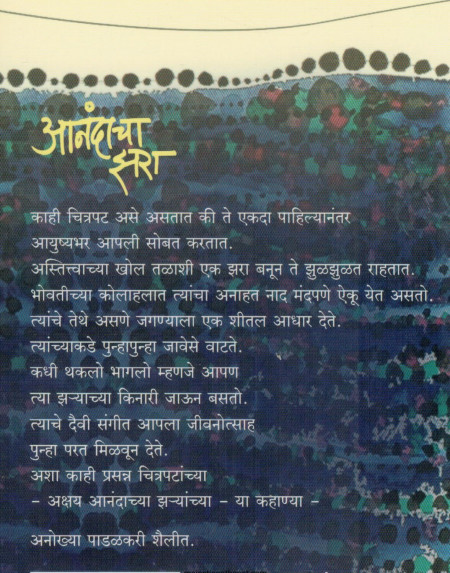 आनंदाचा
झरा
काही चित्रपट असे असतात की ते एकदा पाहिल्यानंतर
आयुष्यभर आपली सोबत करतात.
अस्तित्त्वाच्या खोल तळाशी एक झरा बनून ते झुळझुळत राहतात.
भोवतीच्या कोलाहलात त्यांचा अनाहत नाद मंदपणे ऐकू येत असतो.
त्यांचे तेथे असणे जगण्याला एक शीतल आधार देते.
त्यांच्याकडे पुन्हापुन्हा जावेसे वाटते.
कधी थकलो भागलो म्हणजे आपण
त्या झऱ्याच्या किनारी जाऊन बसतो.
त्याचे दैवी संगीत आपला जीवनोत्साह
पुन्हा परत मिळवून देते.
अशा काही प्रसन्न चित्रपटांच्या
– अक्षय आनंदाच्या झऱ्यांच्या – या कहाण्या –
अनोख्या पाडळकरी शैलीत.